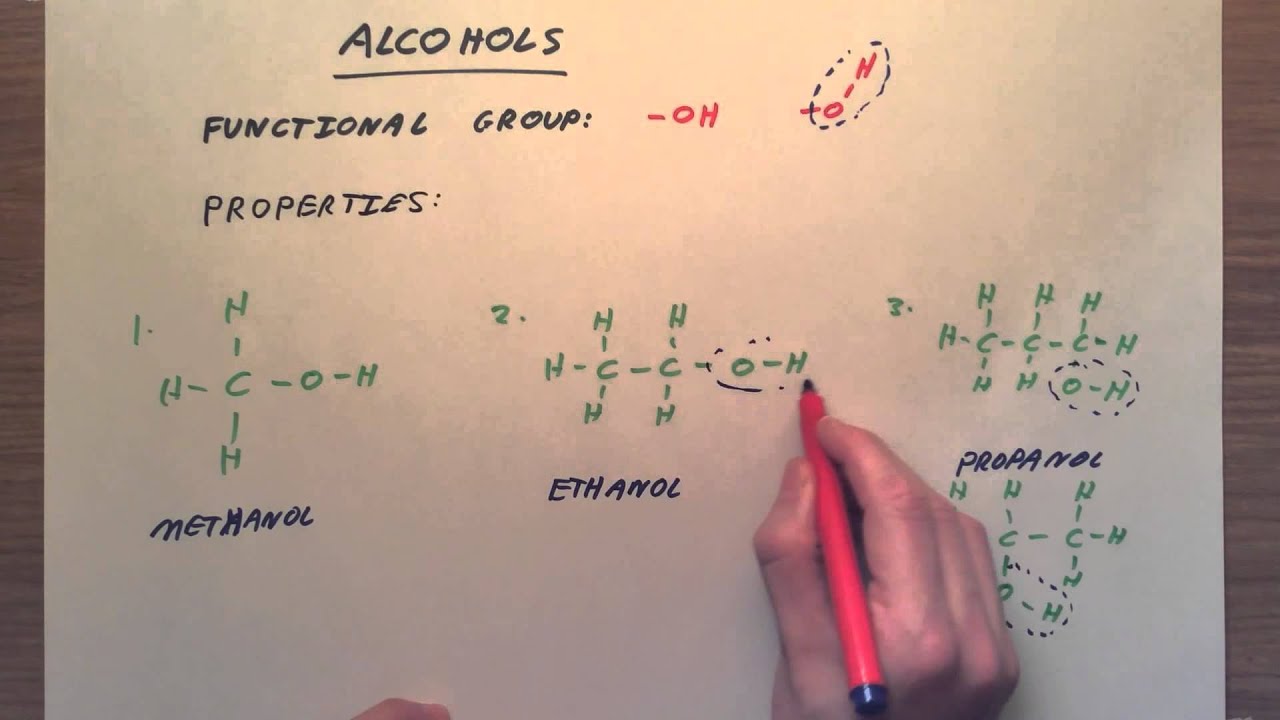 ALCOHOLS
FUNCTIONAL GROUP: -OH -O-H
PROPERTIES:
1.
H
H-C-O-H
H
METHANOL
2.
H H
H-C-C-O-H
H H
ETHANOL
3.
H H H
H-C-C-C-H
H H O-H
PROPANOL
H H H
C-C-H
O-H H